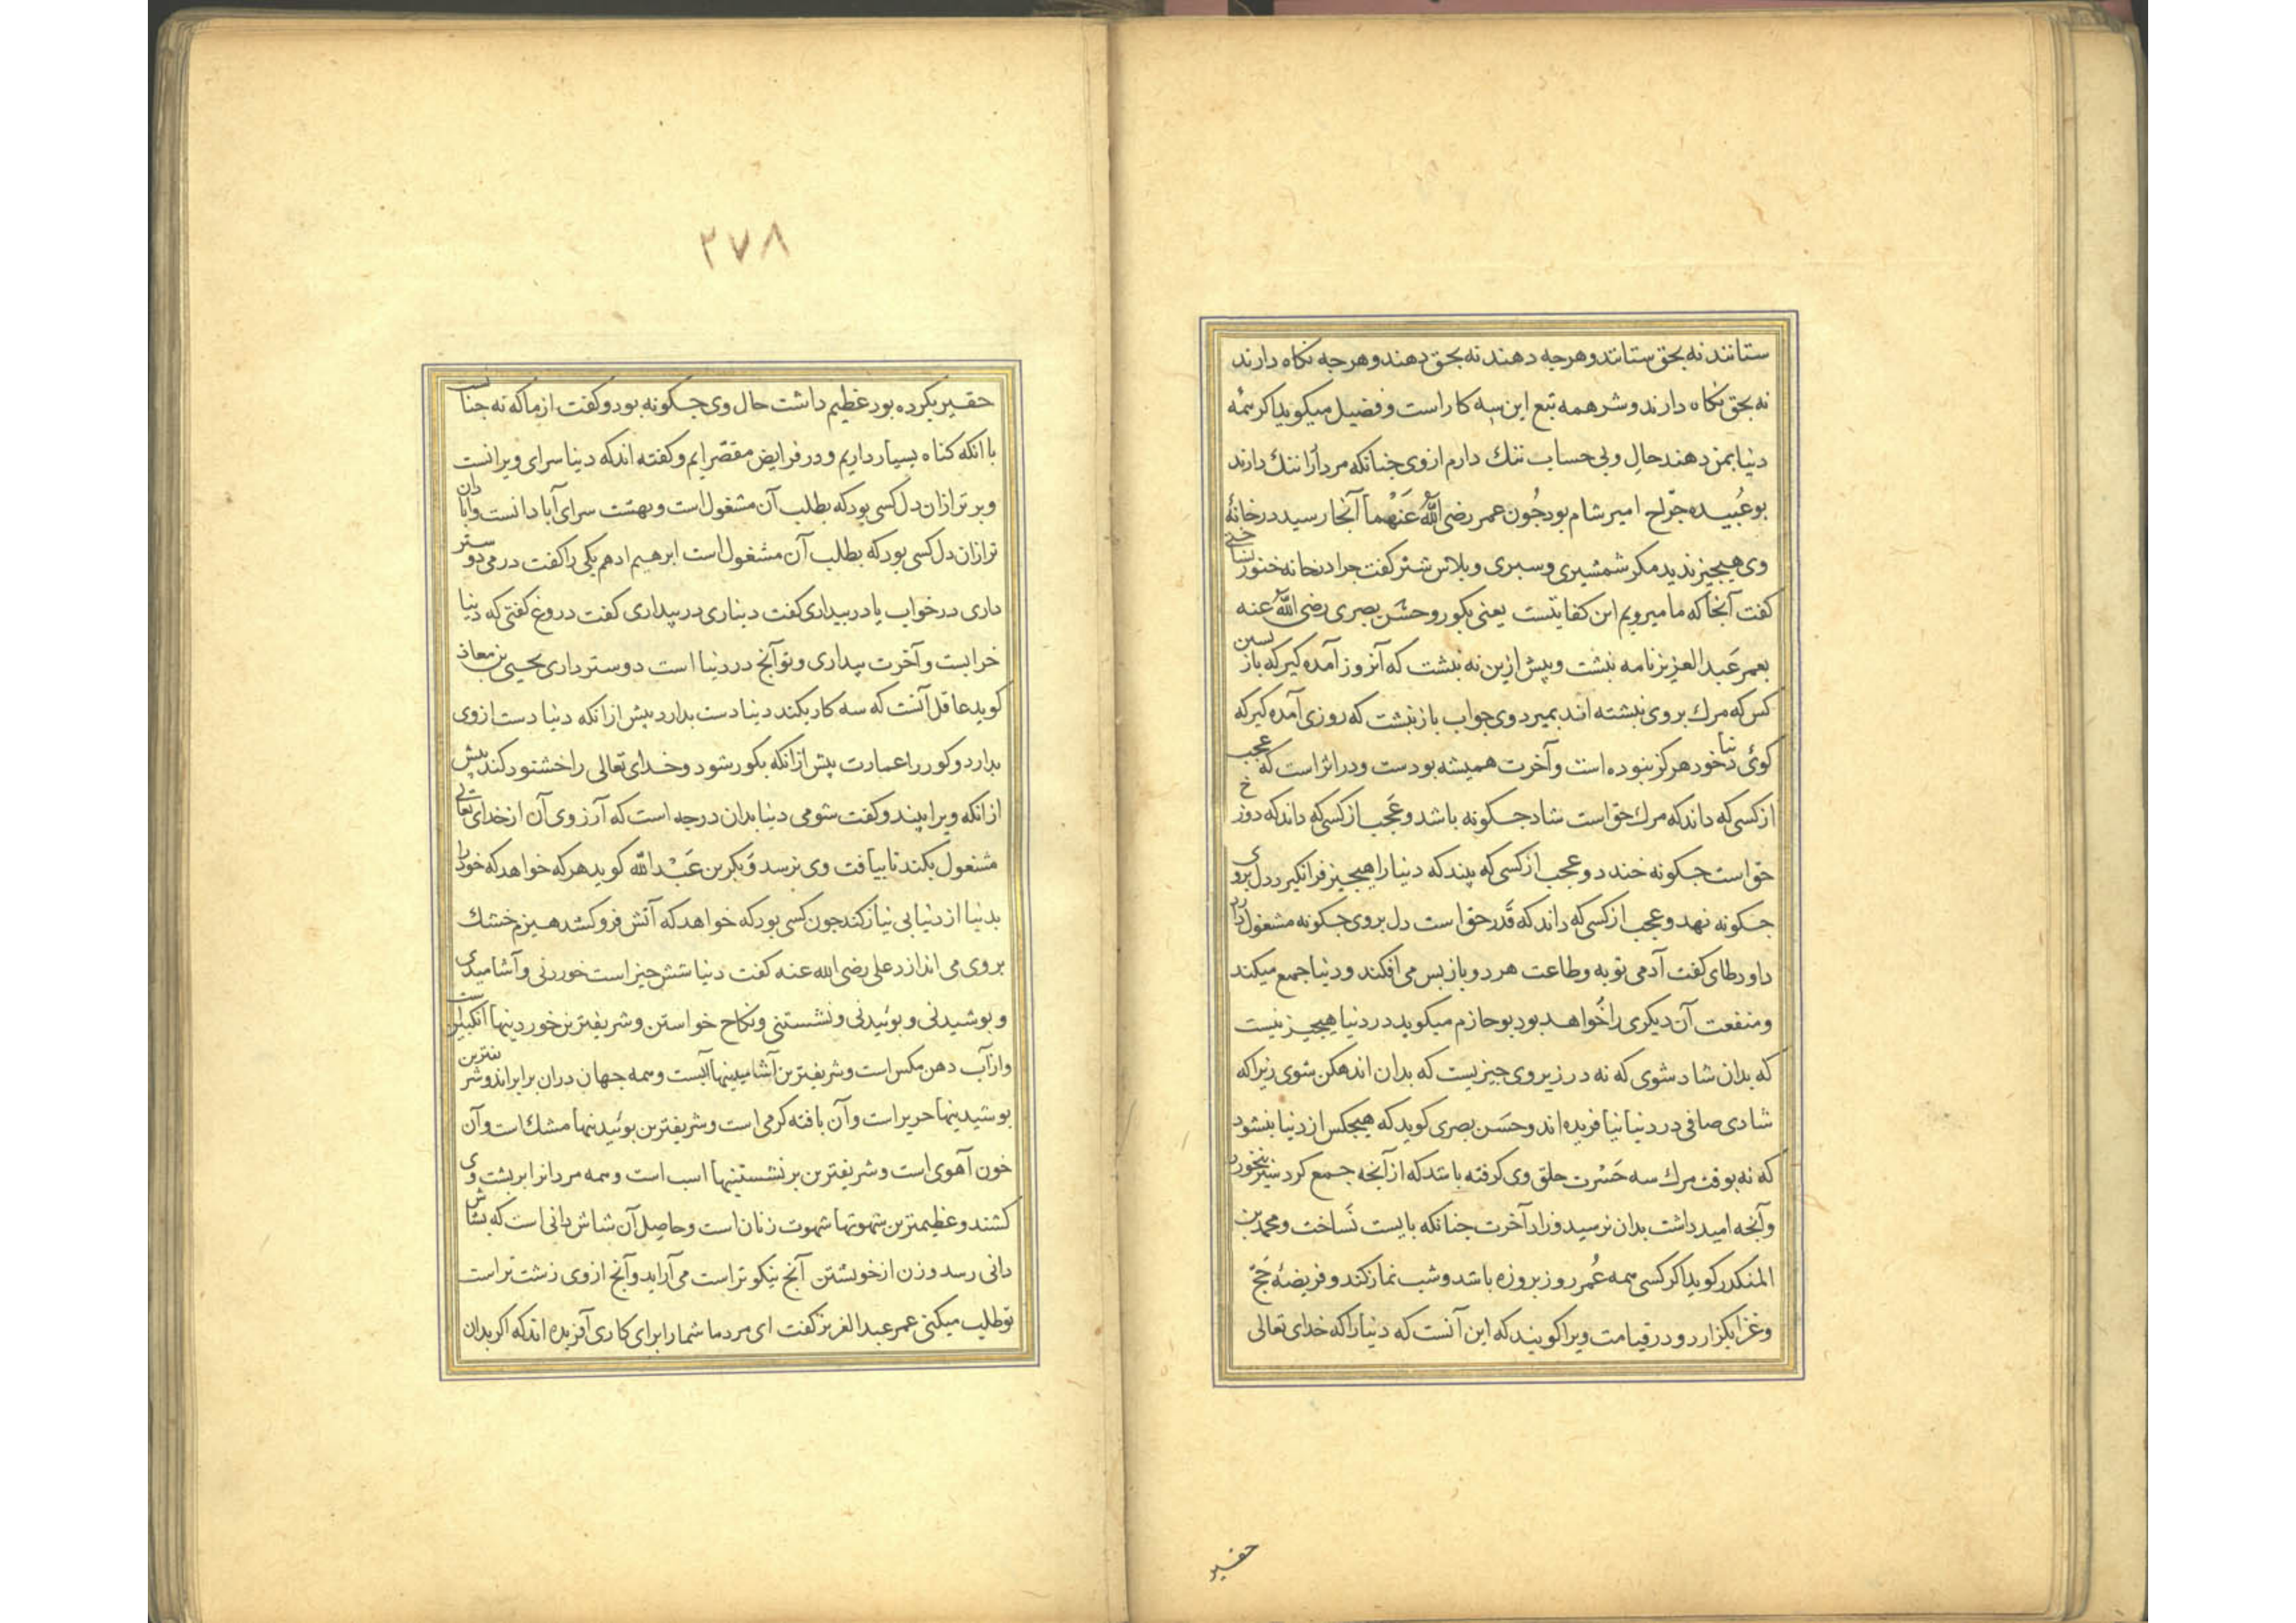 ستانند نه بحق ستانند و هرجه دهند نه بحق دهند و هرجه نکاه دارند
نه بحق نکاه دارند و شر همه تبع این سه کار است و فضیل میکوید اکر همه
دنیا بمن دهند حلال و بی حساب ننك دارم از وی جنانکه مردار را ننك دارند
بوعُبیده جرّاح امیر شام بود جُون عمر رضی الله عَنْهُما آنجا رسید در خانهٔ
وی هیجیز ندید مکر شمشیری و سبری و بلاس شتر کفت جرا در خانه خنوری نساختی
کفت آنجا که ما میرویم این کفایتست یعنی بکور و حسَن بصری رضی الله عنه
بعمر عَبد العزیز نامه نبشت و بیش ازین نه نبشت که آنروز آمده کیر که بازبسین
کس که مرك بر وی نبشته اند بمیرد وی جواب باز نبشت که روزی آمده کیر که
کوئی دنیا خود هرکز نبوده است و آخرت همیشه بودست و در اثر است که عجب
از کسی که داند که مرك حق است شاد جکونه باشد و عَجب از کسی که داند که دوزخ
حق است جکونه خندد و عجب از کسی که بیند که دنیا را هیجیز فرا نکیرد دل بر وی
جکونه نهد و عجب از کسی که داند که قَدَر حق است دل بروی جکونه مشغول دارد
داود طای کفت آدمی توبه و طاعت هر دو باز بس می افکند و دنیا جمع میکند
و منفعت آن دیکری را خَواهد بود بوحازم میکوید در دنیا هیجیز نیست
که بدان شاد شوی که نه در زیر وی جیزیست که بدان اندهکن شوی زیرا که
شادی صافی در دنیا نیا فریده اند و حسَن بصری کوید که هیجکس از دنیا بنشود
که نه بوقت مرك سه حَسْرت حلق وی کرفته باشد که از آنجه جمع کرد سیر نخورد
و آنجه امید داشت بدان نرسید و زاد آخرت جنانکه بایست نَساخت و محمد بن
المنکدر کوید اکر کسی همه عُمر روز بروزه باشد و شب نماز کند و فریضهٔ حَجّ
و غزا بکزارد و در قیامت ویرا کویند که این آنست که دنیا را که خدای تعالی
حقیر
٢٧٨
حقیر بکرده بود عظیم داشت حال وی جکونه بود و کفت از ما که نه جنانست
با انکه کناه بسیار داریم و در فرایض مقصّر ایم و کفته اند که دنیا سرای ویرانست
و بر تر ازان دل کسی بود که بطلب آن مشغول است و بهشت سرای آبادانست و آبادان
تر ازان دل کسی بود که بطلب آن مشغول است ابرهیم ادهم یکی را کفت درمی دوستر
داری در خواب یا در بیداری کفت دیناری در بیداری کفت دروغ کفتی که دنیا
خوابست و آخرت بیداری و تو آنج در دنیا است دوستر داری یحیی بن معاذ
کوید عاقل آنست که سه کار بکند دینا دست بدارد بیش ازانکه دنیا دست از وی
بدارد و کور را عمارت بیش ازانکه بکور شود و خدای تعالی را خشنود کند بیش
ازانکه ویرا بیند و کفت شومی دنیا بدان درجه است که آرزوی آن از خدای تعالی
مشغول بکند تا بیافت وی نرسد وَ بکر بن عَبْد الله کوید هرکه خواهد که خود را
بدنیا از دنیا بی نیاز کند جون کسی بود که خواهد که آتش فرو کشد هیزم خشك
بر وی می اندازد علی رضی الله عنه کفت دنیا شش جیز است خوردنی و آشامیدنی
و بوشیدنی و بوئیدنی و نشستنی و نکاح خواستن و شریفترین خوردینها انکبین است
و از آب دهن مکس است و شریفترین آشامیدینها آبست و همه جهان دران برابر اند و شریفترین
بوشیدینها حریر است و آن بافته کرمی است و شریفترین بوئیدینها مشك است و آن
خون آهوی است و شریفترین بر نشستنیها اسب است و همه مردانرا بر بشت وی
کشند و عظیمترین شهوتها شهوت زنان است و حاصل آن شاش دانی است که بشاش
دانی رسد و زن از خویشتن آنج نیکوتر است می آراید و آنج از وی زشت تر است
تو طلب میکنی عمر عبد العزیز کفت ای مردما شما را برای کاری آفریده اند که اکر بدان